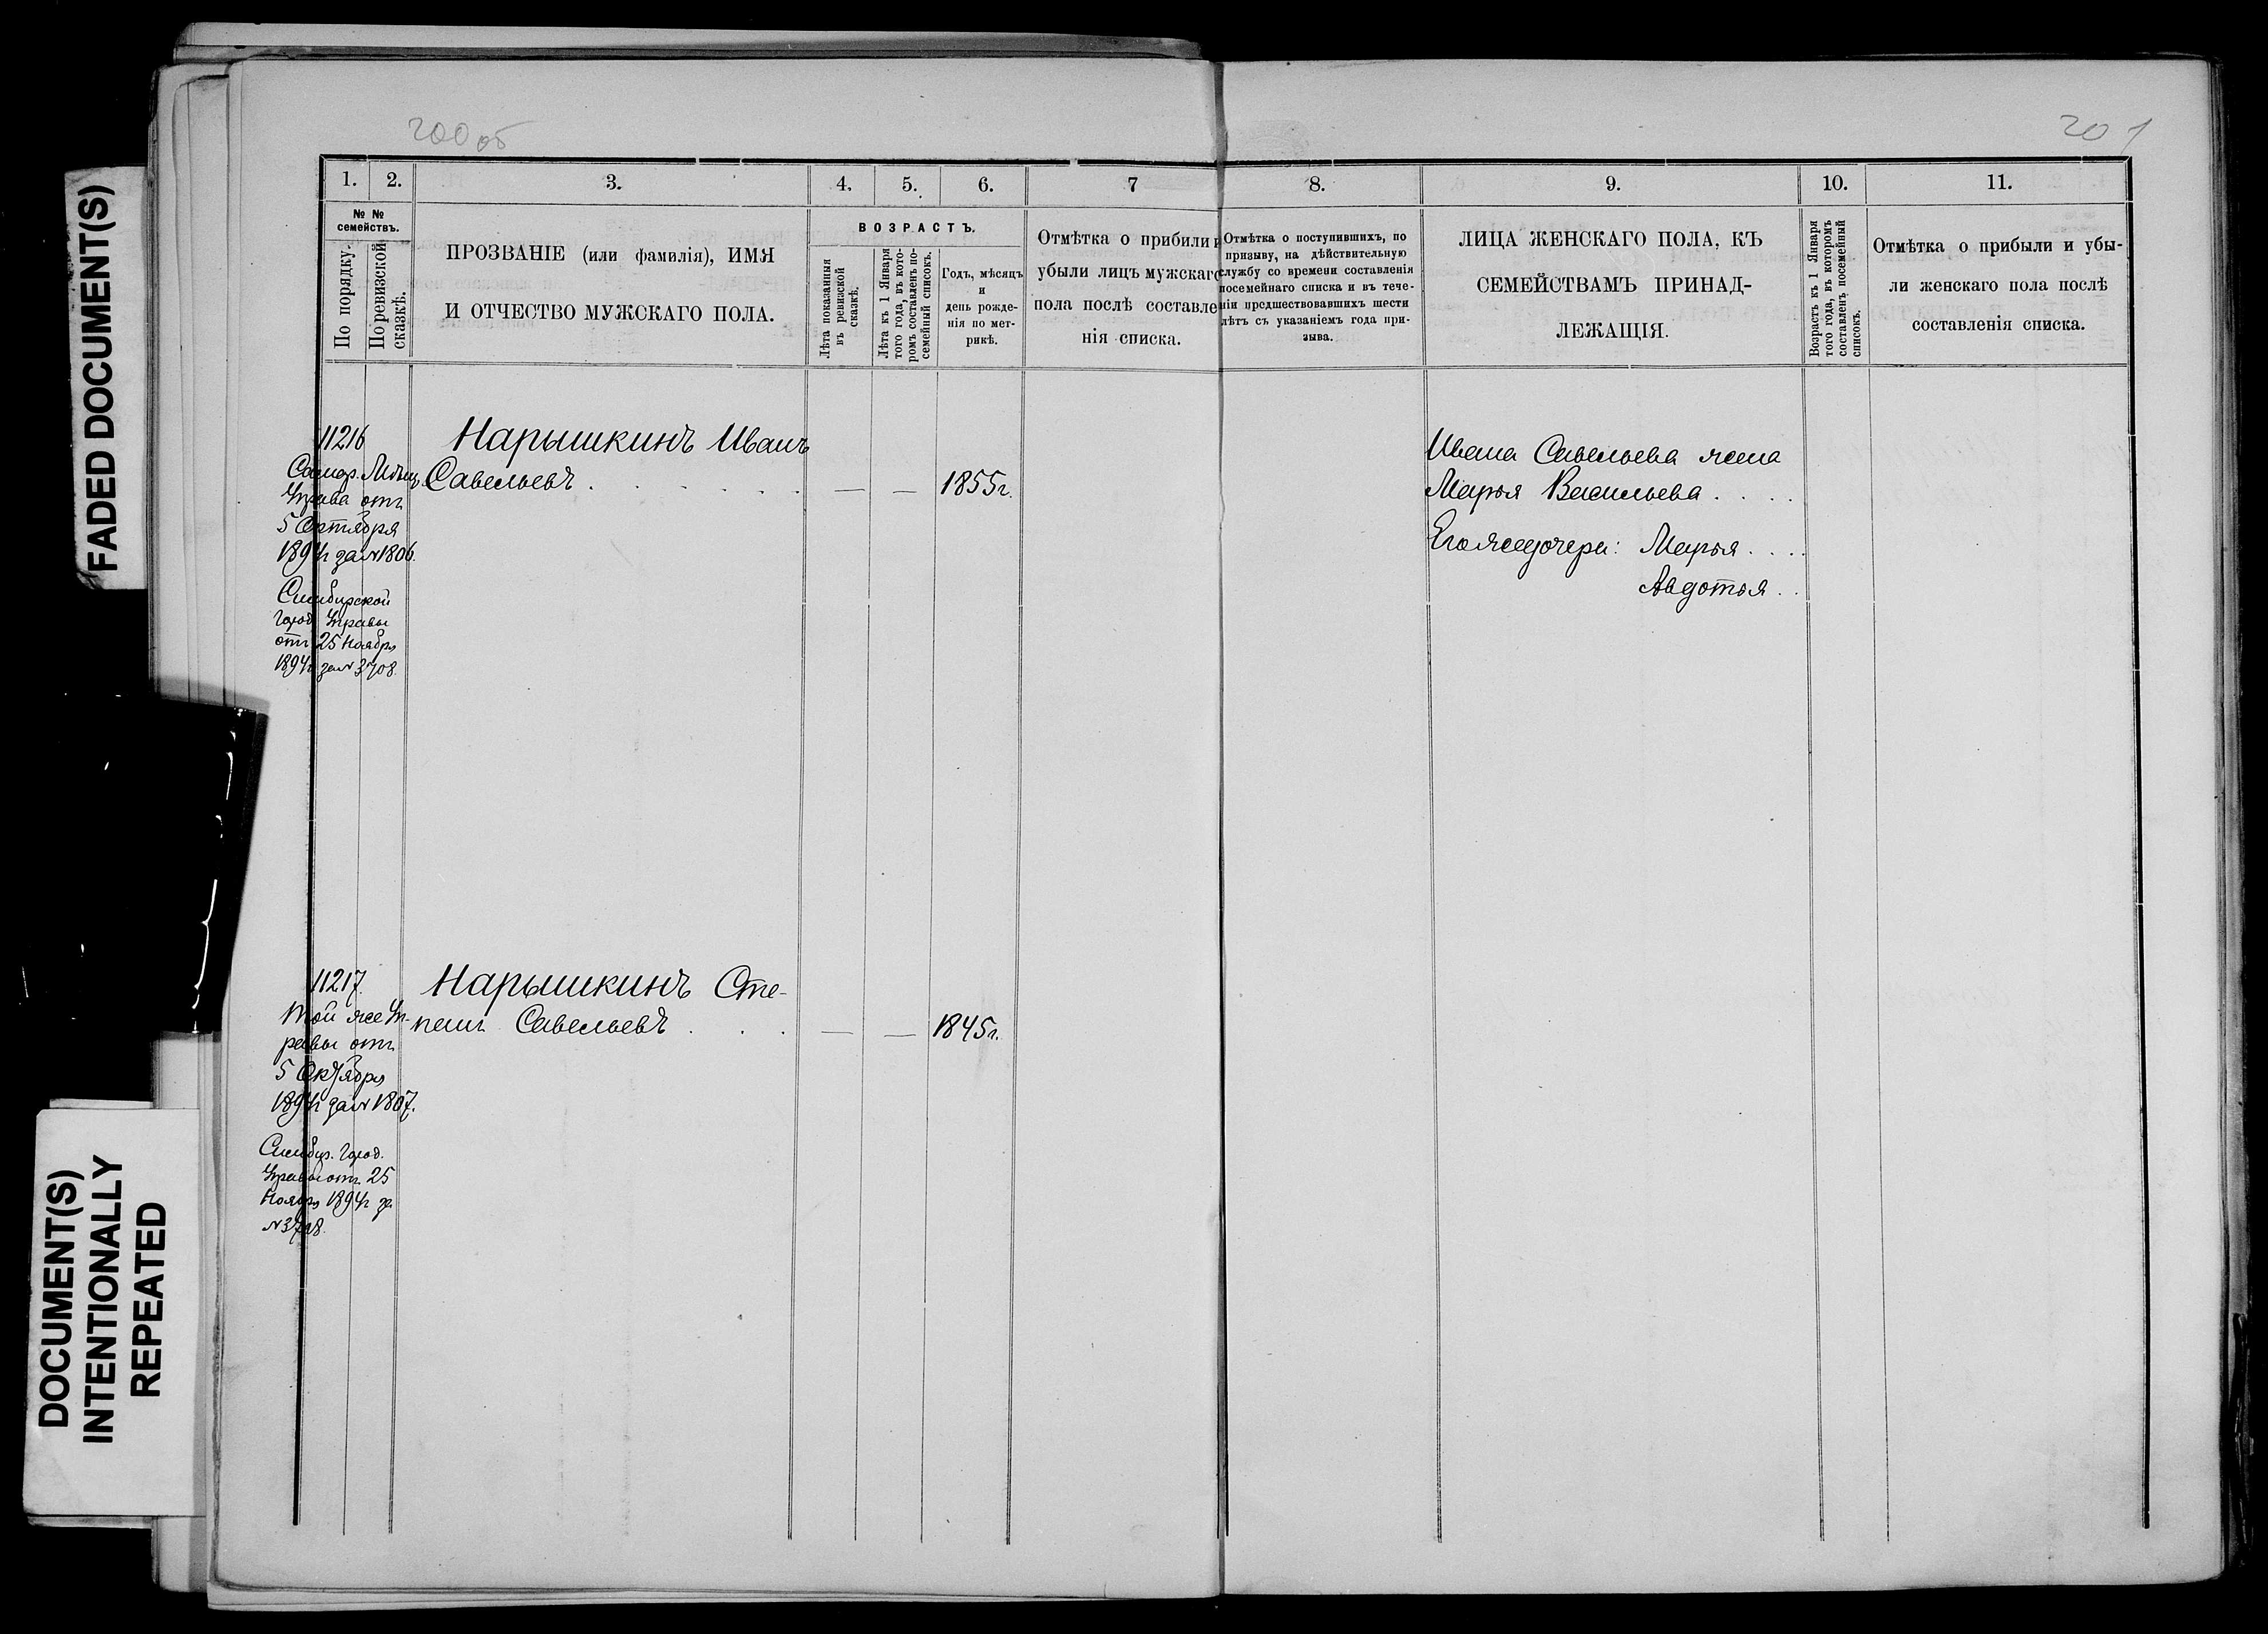 FADED DOCUMENT(S)
DOCUMENT(S)
INTENTIONALLY
REPEATED
200 об
201
1.
2.
3.
4.
5.
6.
7
8.
9.
10.
11.
№ №
семействъ.
По порядку.
По ревизской
сказкѣ.
ПРОЗВАНІЕ (или фамилія), ИМЯ
И ОТЧЕСТВО МУЖСКАГО ПОЛА.
ВОЗРАСТЪ.
Лѣта показанныя
въ ревизской
сказкѣ.
Лѣта къ 1 Января
того года, въ кото-
ромъ составленъ по-
семейный списокъ.
Годъ, мѣсяцъ
и
день рожде-
нія по мет-
рикѣ.
Отмѣтка о прибыли и
убыли лицъ мужскаго
пола послѣ составле-
нія списка.
Отмѣтка о поступившихъ, по
призыву, на дѣйствительную
службу со времени составленія
посемейнаго списка и въ тече-
ніи предшествовавшихъ шести
лѣтъ съ указаніемъ года при-
зыва.
ЛИЦА ЖЕНСКАГО ПОЛА, КЪ
СЕМЕЙСТВАМЪ ПРИНАД-
ЛЕЖАЩІЯ.
Возрастъ къ 1 Января
того года, въ которомъ
составленъ посемейный
списокъ.
Отмѣтка о прибыли и убы-
ли женскаго пола послѣ
составленія списка.
11216
Самар. Мѣщ.
Управа отъ
5 Октября
1894г за № 1806.
Симбирской
Город. Управы
отъ 25 Ноября
1894г за № 3708.
Нарышкинъ Иванъ
Савельевъ . . . . . . — — 1855г.
Ивана Савельева жена
Марья Васильева . . . .
Его же дочери: Марья . . . .
Авдотья . .
11217.
Той же Уп-
равы отъ
5 Октября
1894г за № 1807.
Симбир. Город.
Управы отъ 25
Ноября 1894г за
№ 3708.
Нарышкинъ Сте-
панъ Савельевъ . . . — — 1845г.